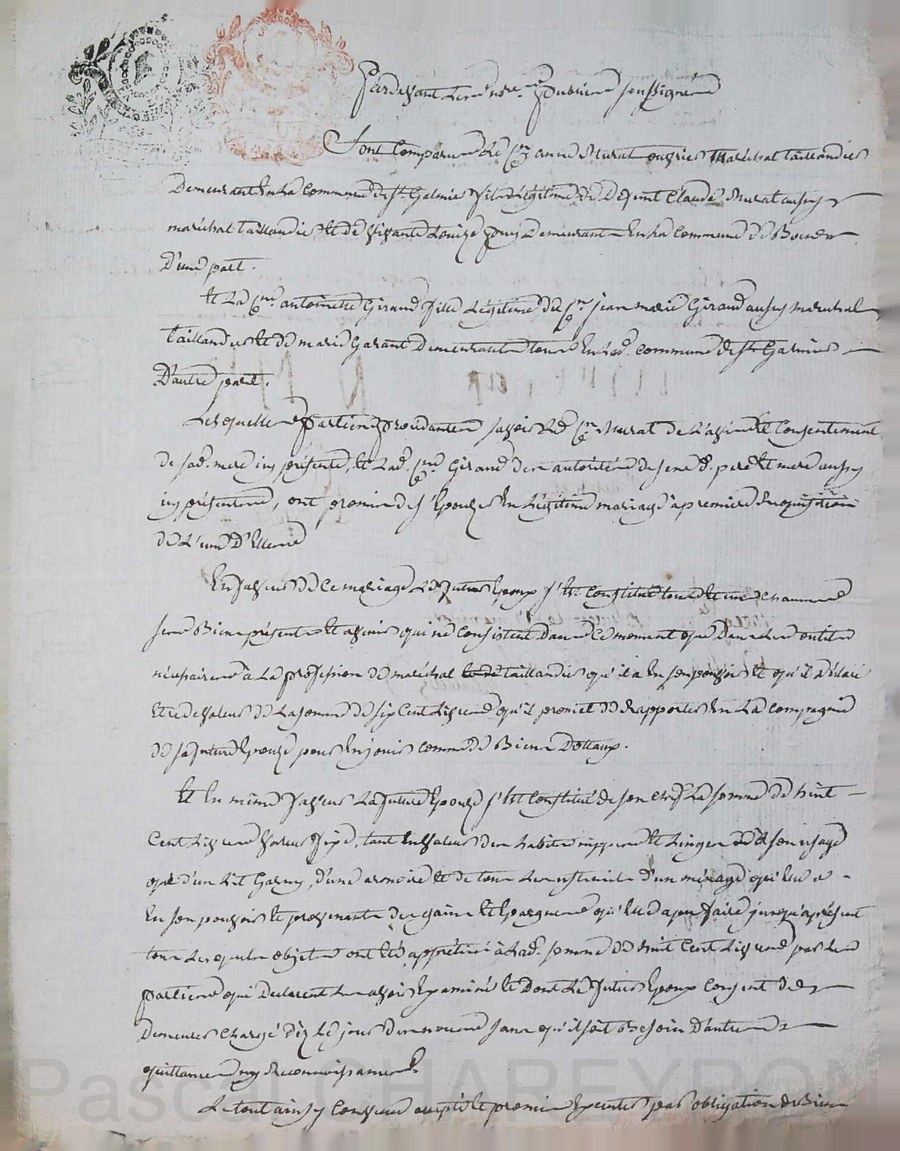 Pardevant Les nores. publics soussignés
Sont Comparus Le Cen anne Murat ouvrier Maréchal taillandier
Demeurant En La Commune de st. Galmier fils Légitime de Défunt Claude Murat aussy
maréchal taillandier et de vivante Louize Demeurante En La Commune de Boen
D'une part.
Et La Cne antoinette Giraud fille Légitime de Cen jean marie Giraud aussy maréchal
taillandier et de marie Garant Demeurants tous En lad. commune de st. Galmier
D'autre part.
Lesquelles parties procedantes savoir Led. Cen Murat de L'avis et Consentement
de sad. mere icy présente, et Lad. Cne Giraud de autorités de ses d. pere et mere aussy
icy présents, ont promis de s'Epouzer En Légitime mariage a première Requisition
de L'une D'Elles
En faveur de Ce mariage Le futur Epoux s'est Constitué tous et uns Chacuns
ses Biens présents et avenir qui ne Consistent Dans ce moment que Dans Les outils
nécessaires à La profession de maréchal taillandier qu'il a En son pouvoir et qu'il a déclaré
Etre de valeur de La somme de six Cent Livres qu'il promet de Rapporter En La Compagnie
de sa future Epouze pour En jouir comme de Biens Dottaux.
Et En même faveur La future Epouze s'est Constitué de son chef La somme de huit
Cent Livres valeur fixe, tant En valeur des habits nippes et Linges de son usage
que d'un Lit Garny, d'une armoire et de tous Les ustensiles d'un ménage qu'Elle a
En son pouvoir et provenants des gains et Epargnes qu'Elle a peu faire jusqu'aprésent
tous Lesquels objets ont été appréciés à Lad. somme de huit Cent Livres par Les
parties qui Declarent Les avoir Examiné et Dont Le futur Epoux Consent de
Demeurer Chargé dez Le jour des noces sans qu'il soit besoin D'autres
quittances ny Reconnoissances.
Le tout ainsy Convenu accepté et promis Executer par obligation de Biens
Pascal CHAREYRON